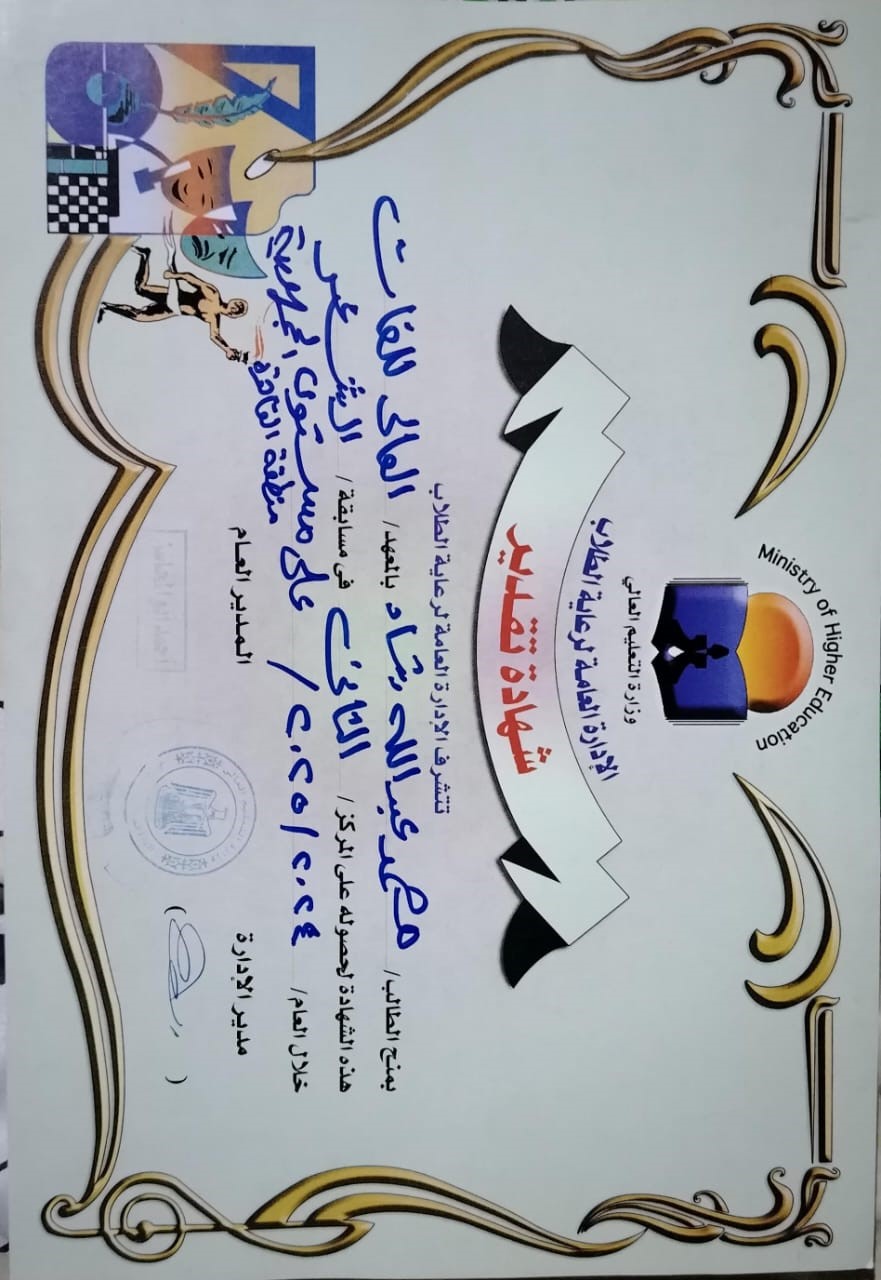 Ministry of Higher Education
وزارة التعليم العالي
الإدارة العامة لرعاية الطلاب
شهادة تقدير
تتشرف الإدارة العامة لرعاية الطلاب
بمنح الطالب/ محمد عبدالله رشاد بالمعهد/ العالى للغات
هذه الشهادة لحصوله على المركز/ الثانى فى مسابقة/ الشعر
خلال العام/ ٢٠٢٤/٢٠٢٥ / على مستوى الجمهورية
منطقة القاهرة
مدير الإدارة المدير العام